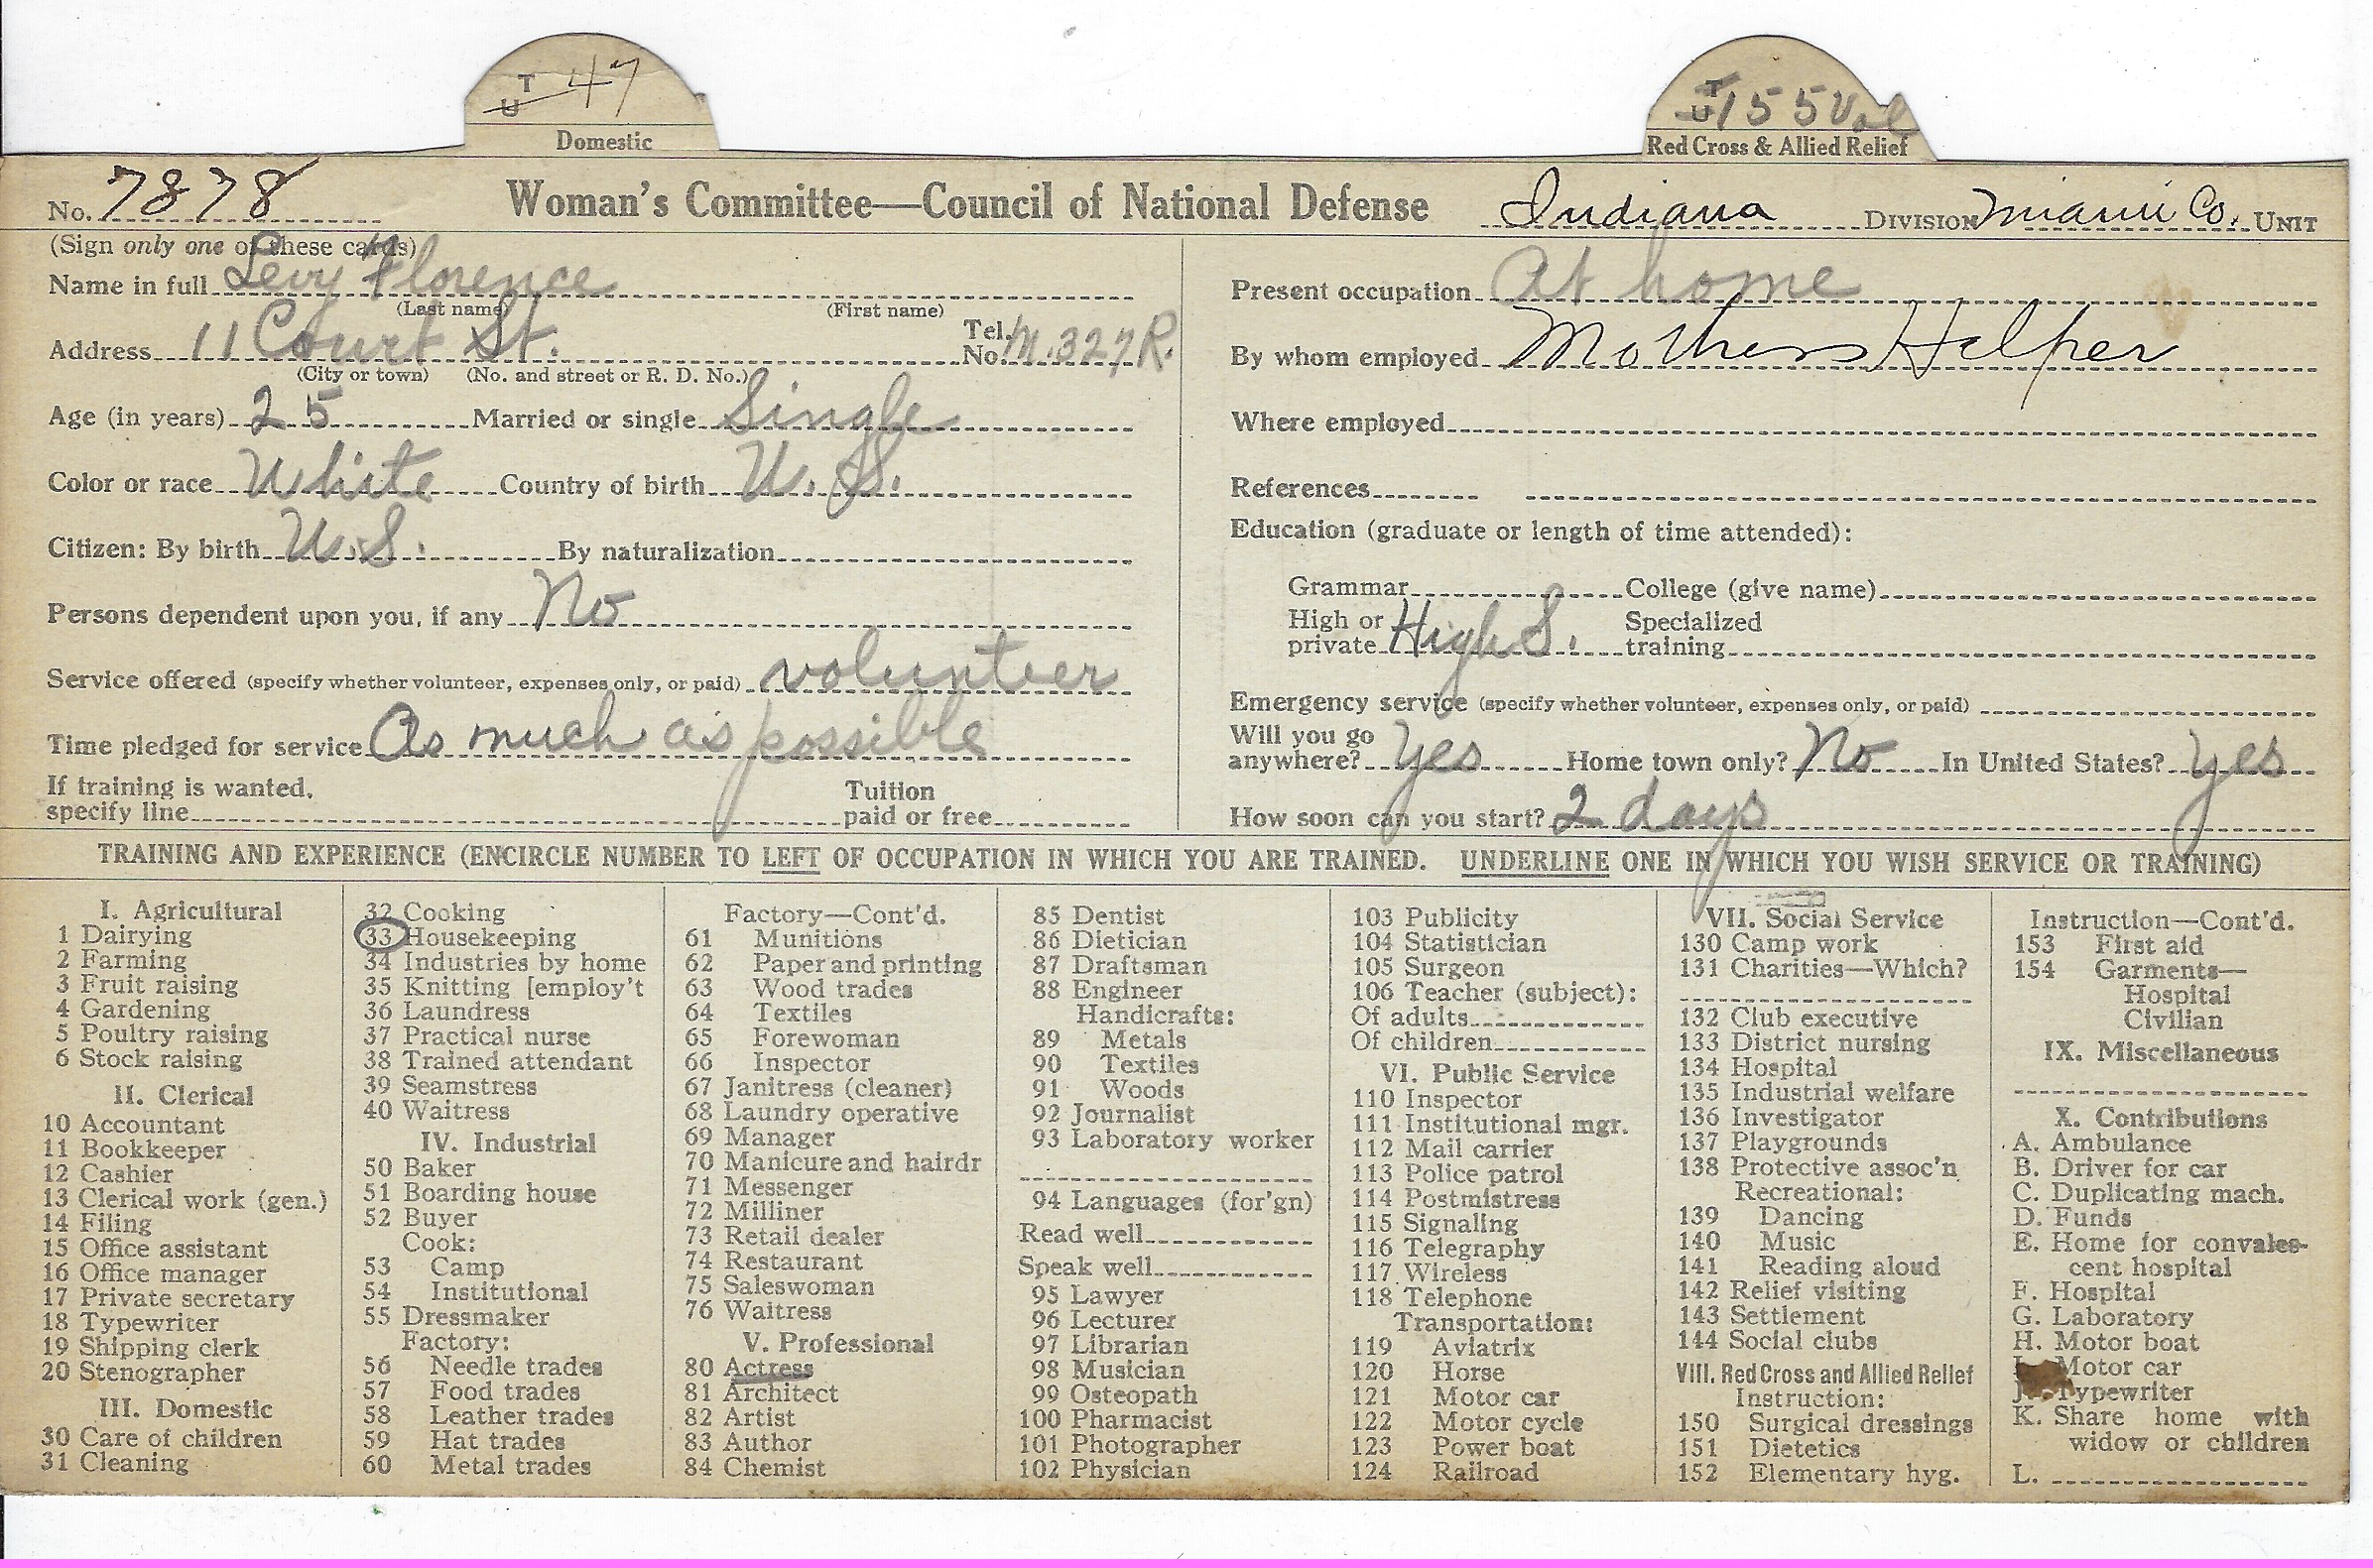 T
U 47
Domestic
T
U 155 Vol
Red Cross & Allied Relief
No. 7878 Woman's Committee—Council of National Defense Indiana DIVISION Miami Co. UNIT
(Sign only one of these cards)
Name in full Levy Florence
(Last name) (First name)
Address 11 Court St. Tel. No. M.327R.
(City or town) (No. and street or R. D. No.)
Age (in years) 25 Married or single Single
Color or race White Country of birth U.S.
Citizen: By birth U.S. By naturalization
Persons dependent upon you, if any No
Service offered (specify whether volunteer, expenses only, or paid) volunteer
Time pledged for service As much as possible
If training is wanted, specify line Tuition paid or free
Present occupation At home
By whom employed Mothers Helper
Where employed
References
Education (graduate or length of time attended):
Grammar College (give name)
High or private High S. Specialized training
Emergency service (specify whether volunteer, expenses only, or paid)
Will you go anywhere? Yes Home town only? No In United States? Yes
How soon can you start? 2 days
TRAINING AND EXPERIENCE (ENCIRCLE NUMBER TO LEFT OF OCCUPATION IN WHICH YOU ARE TRAINED. UNDERLINE ONE IN WHICH YOU WISH SERVICE OR TRAINING)
I. Agricultural
1 Dairying
2 Farming
3 Fruit raising
4 Gardening
5 Poultry raising
6 Stock raising
II. Clerical
10 Accountant
11 Bookkeeper
12 Cashier
13 Clerical work (gen.)
14 Filing
15 Office assistant
16 Office manager
17 Private secretary
18 Typewriter
19 Shipping clerk
20 Stenographer
III. Domestic
30 Care of children
31 Cleaning
32 Cooking
33 Housekeeping
34 Industries by home
35 Knitting [employ't
36 Laundress
37 Practical nurse
38 Trained attendant
39 Seamstress
40 Waitress
IV. Industrial
50 Baker
51 Boarding house
52 Buyer
Cook:
53 Camp
54 Institutional
55 Dressmaker
Factory:
56 Needle trades
57 Food trades
58 Leather trades
59 Hat trades
60 Metal trades
Factory—Cont'd.
61 Munitions
62 Paper and printing
63 Wood trades
64 Textiles
65 Forewoman
66 Inspector
67 Janitress (cleaner)
68 Laundry operative
69 Manager
70 Manicure and hairdr
71 Messenger
72 Milliner
73 Retail dealer
74 Restaurant
75 Saleswoman
76 Waitress
V. Professional
80 Actress
81 Architect
82 Artist
83 Author
84 Chemist
85 Dentist
86 Dietician
87 Draftsman
88 Engineer
Handicrafts:
89 Metals
90 Textiles
91 Woods
92 Journalist
93 Laboratory worker
94 Languages (for'gn)
Read well
Speak well
95 Lawyer
96 Lecturer
97 Librarian
98 Musician
99 Osteopath
100 Pharmacist
101 Photographer
102 Physician
103 Publicity
104 Statistician
105 Surgeon
106 Teacher (subject):
Of adults
Of children
VI. Public Service
110 Inspector
111 Institutional mgr.
112 Mail carrier
113 Police patrol
114 Postmistress
115 Signaling
116 Telegraphy
117 Wireless
118 Telephone
Transportation:
119 Aviatrix
120 Horse
121 Motor car
122 Motor cycle
123 Power boat
124 Railroad
VII. Social Service
130 Camp work
131 Charities—Which?
132 Club executive
133 District nursing
134 Hospital
135 Industrial welfare
136 Investigator
137 Playgrounds
138 Protective assoc'n
Recreational:
139 Dancing
140 Music
141 Reading aloud
142 Relief visiting
143 Settlement
144 Social clubs
VIII. Red Cross and Allied Relief
Instruction:
150 Surgical dressings
151 Dietetics
152 Elementary hyg.
Instruction—Cont'd.
153 First aid
154 Garments—
Hospital
Civilian
IX. Miscellaneous
X. Contributions
A. Ambulance
B. Driver for car
C. Duplicating mach.
D. Funds
E. Home for convales-
cent hospital
F. Hospital
G. Laboratory
H. Motor boat
Motor car
J. Typewriter
K. Share home with
widow or children
L.